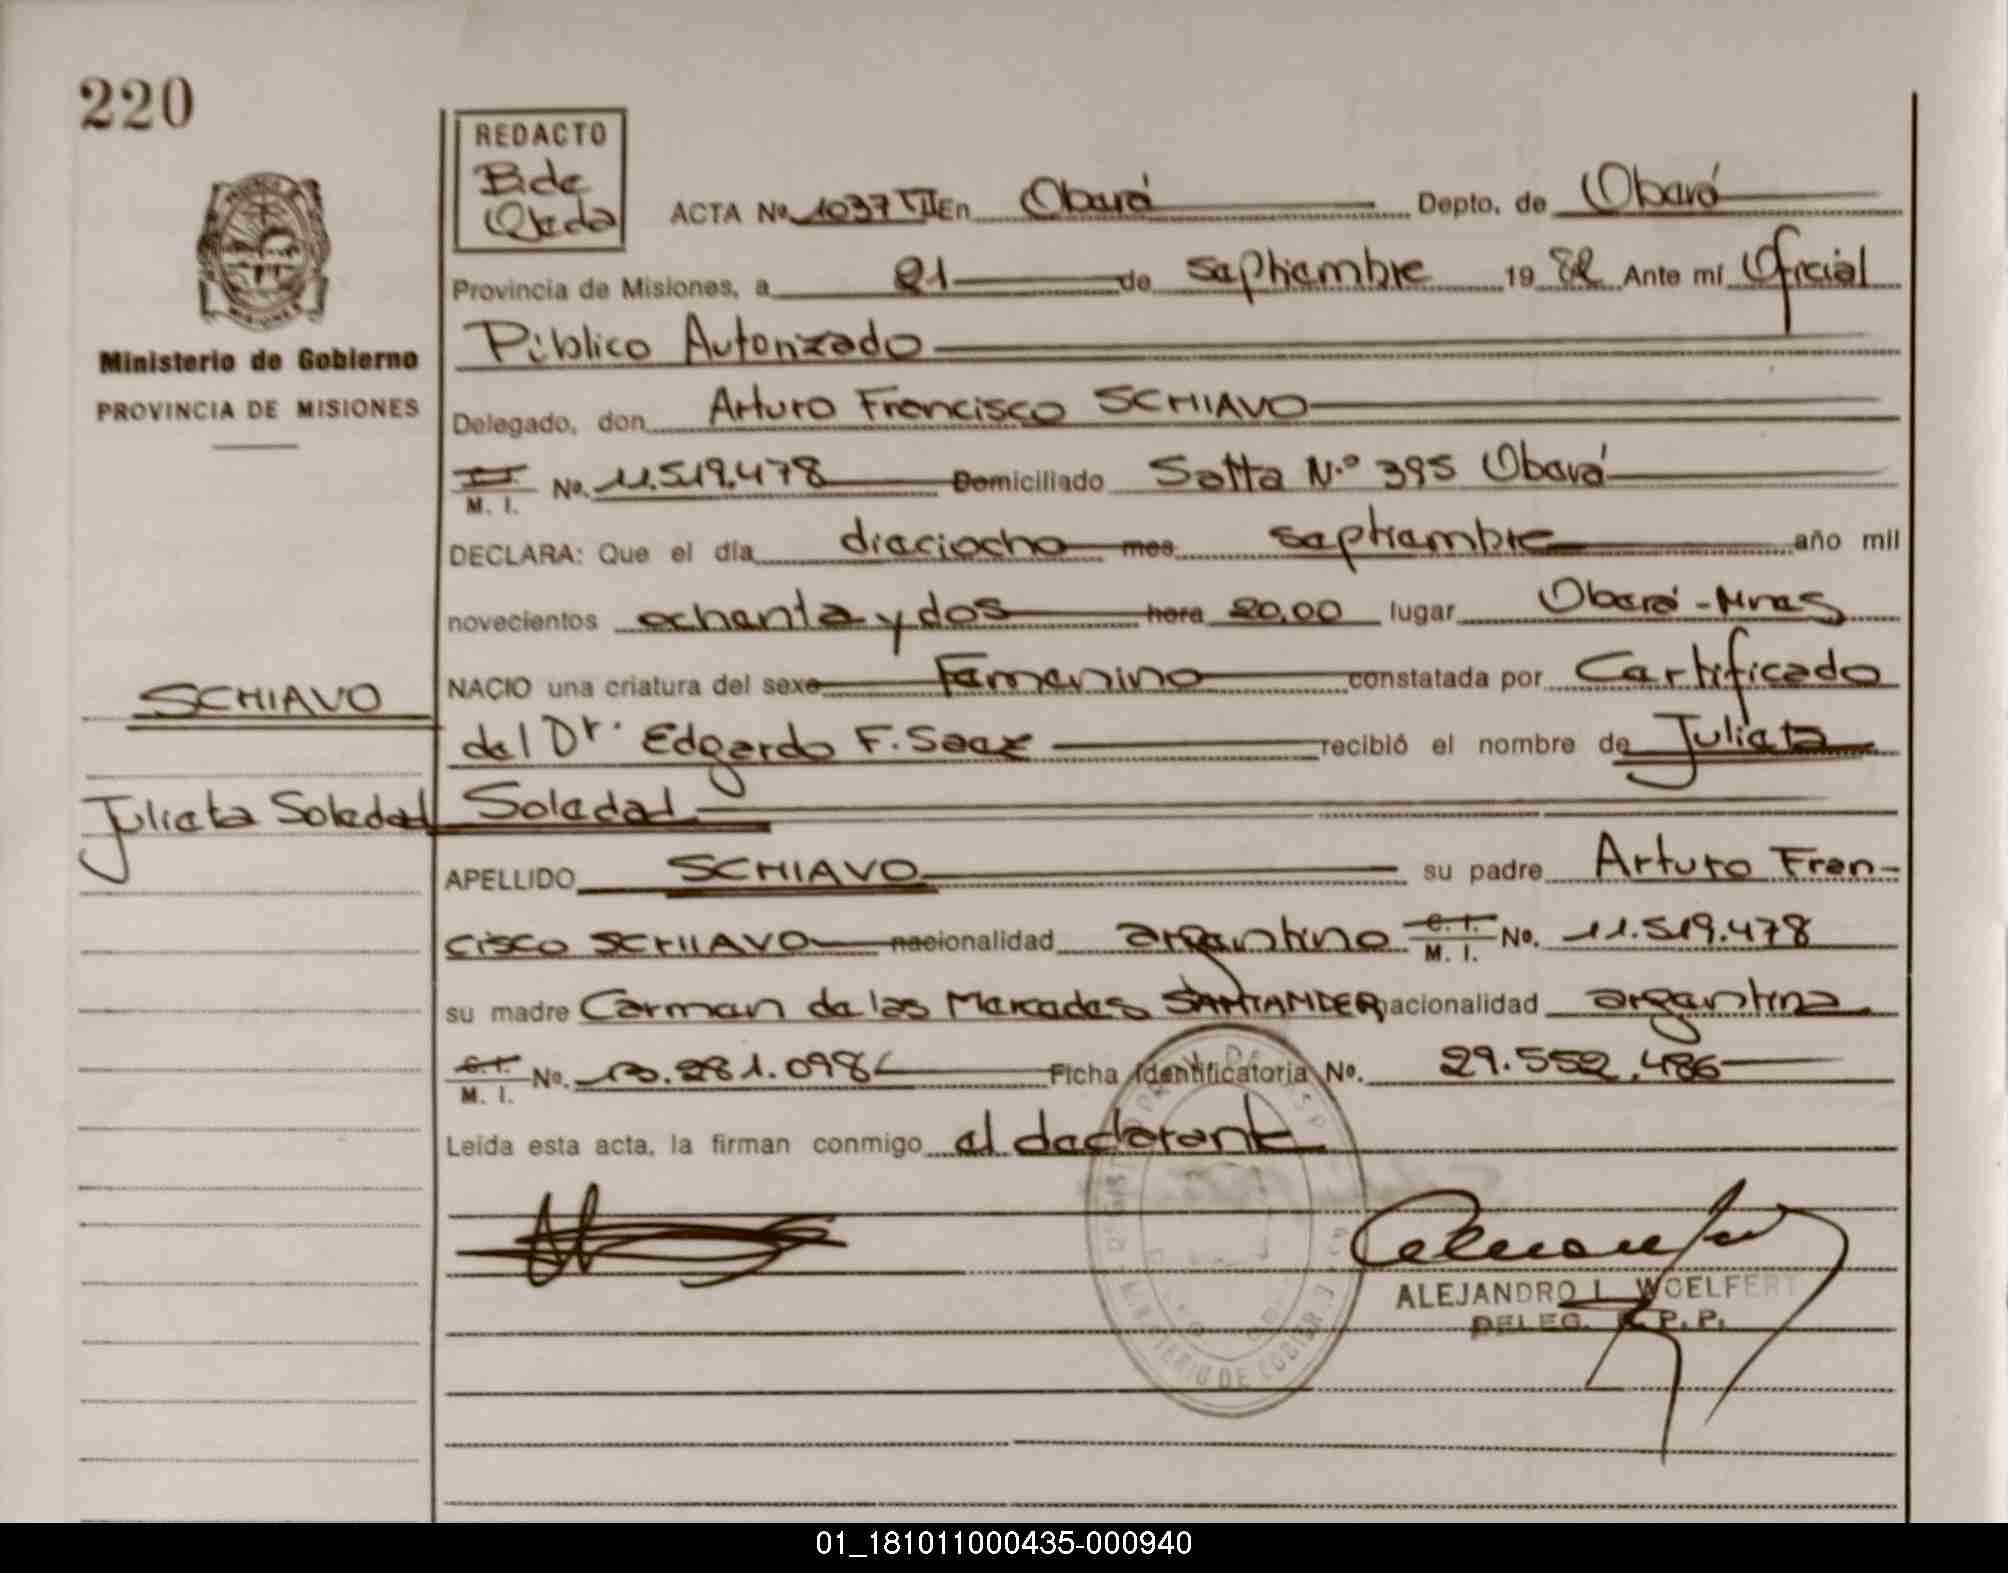 220
REDACTO
B. de
Ojeda
ACTA Nº 1037 VII En Oberá Depto. de Oberá
Provincia de Misiones, a 21 de septiembre 1982 Ante mí Oficial
Público Autorizado
Ministerio de Gobierno
PROVINCIA DE MISIONES
Delegado, don Arturo Francisco SCHIAVO
M. I. No. 11.519.478 Domiciliado Salta N.º 395 Oberá
DECLARA: Que el día dieciocho mes septiembre año mil
novecientos ochenta y dos hora 20,00 lugar Oberá - Mnes
SCHIAVO
NACIO una criatura del sexo Femenino constatada por Certificado
del Dr. Edgardo F. Saez recibió el nombre de Julieta
Julieta Soledad
Soledad
APELLIDO SCHIAVO su padre Arturo Fran-
cisco SCHIAVO nacionalidad argentino C. I. M. I. No. 11.519.478
su madre Carmen de las Mercedes SANTANDER nacionalidad argentina
C. I. M. I. No. 281.098 Ficha identificatoria No. 29.552.486
Leída esta acta, la firman conmigo el declarante
ALEJANDRO L. WOELFERT
DELEG. R. P. P.
MINISTERIO DE GOBIER.
01_181011000435-000940